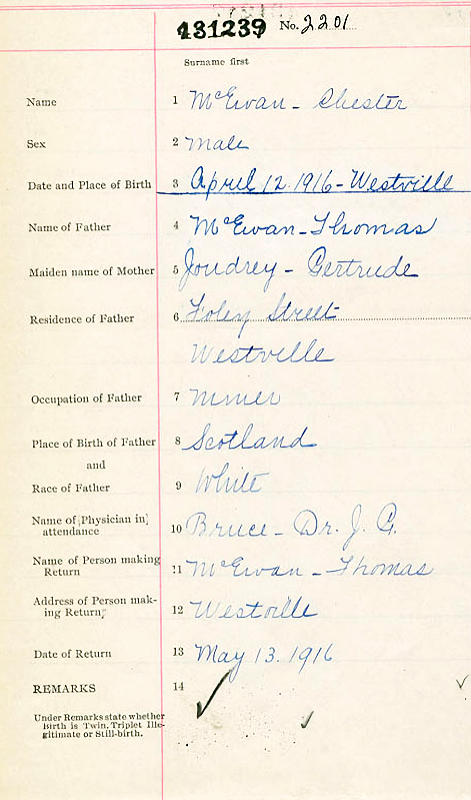 431239 No. 2201
Surname first
Name 1 McEwan - Chester
Sex 2 Male
Date and Place of Birth 3 April 12. 1916 - Westville
Name of Father 4 McEwan - Thomas
Maiden name of Mother 5 Joudrey - Gertrude
Residence of Father 6 Foley Street
Westville
Occupation of Father 7 Miner
Place of Birth of Father 8 Scotland
and
Race of Father 9 White
Name of [Physician in] attendance 10 Bruce - Dr. J. G.
Name of Person making Return 11 McEwan - Thomas
Address of Person making Return, 12 Westville
Date of Return 13 May 13. 1916
REMARKS 14
Under Remarks state whether
Birth is Twin, Triplet Ille-
gitimate or Still-birth.